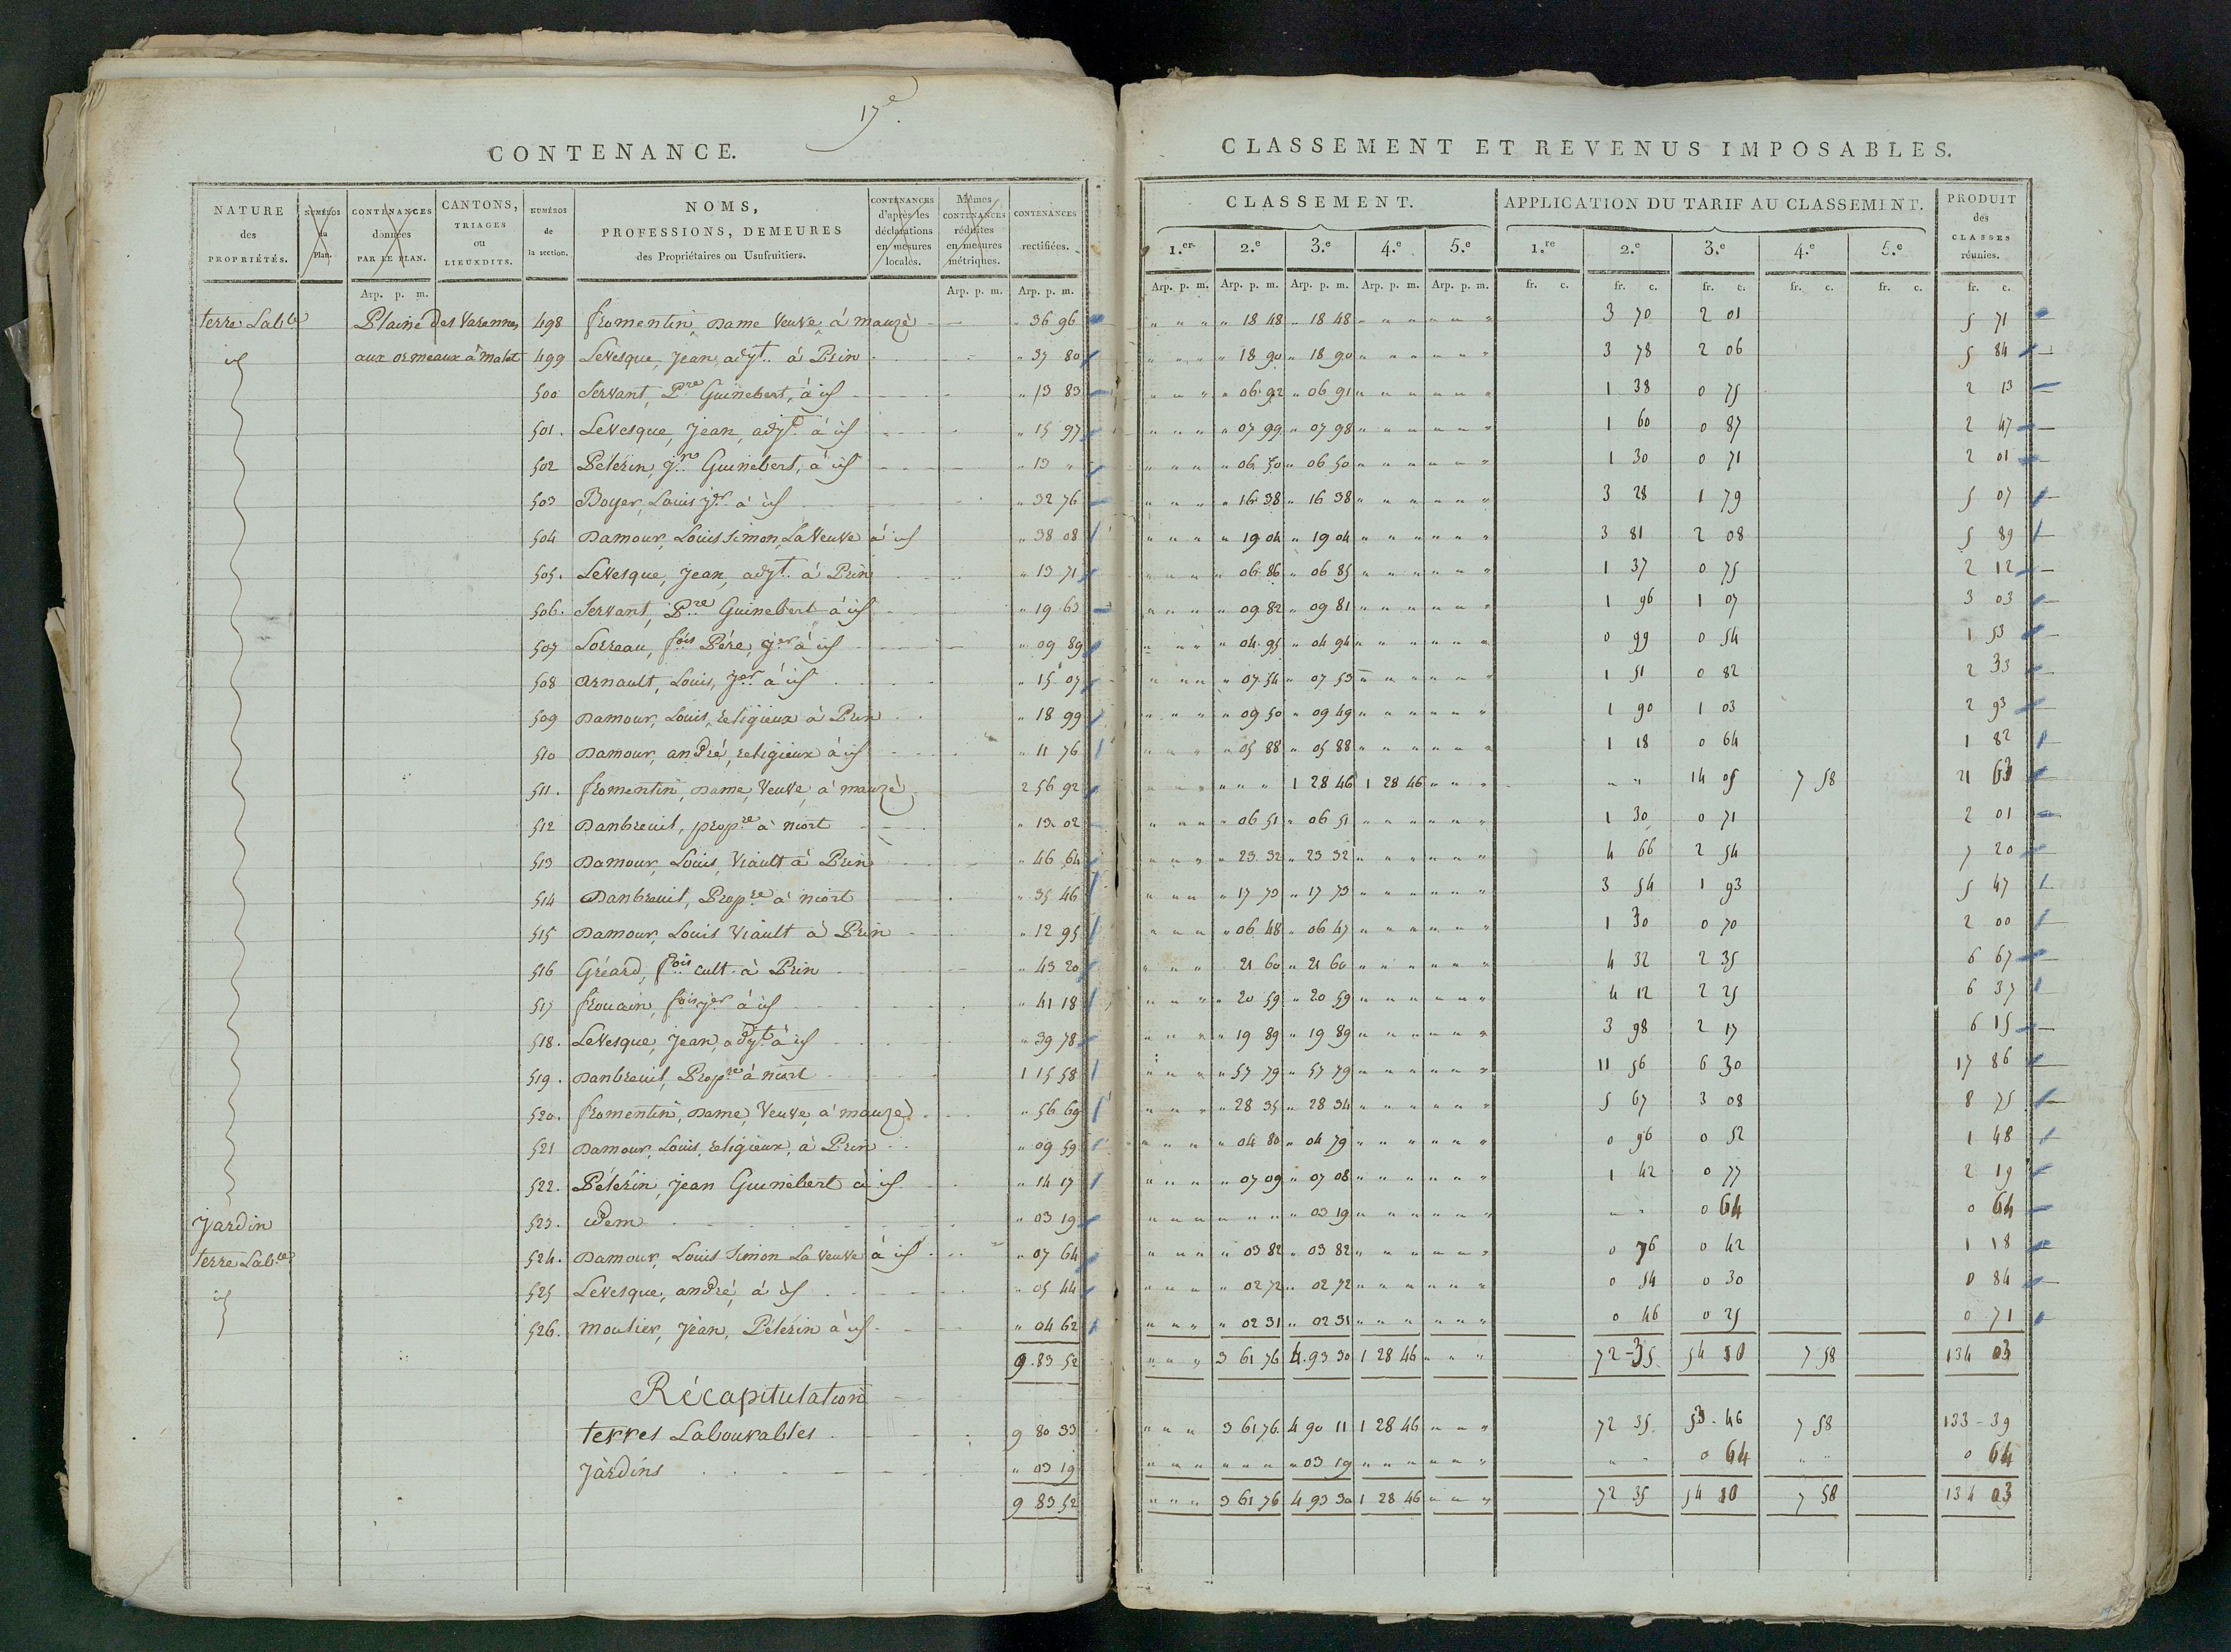 17e.
CONTENANCE.
NATURE des PROPRIÉTÉS. | NUMÉROS du Plan. | CONTENANCES données PAR LE PLAN. | CANTONS, TRIAGES ou LIEUXDITS. | NUMÉROS de la section. | NOMS, PROFESSIONS, DEMEURES des Propriétaires ou Usufruitiers. | CONTENANCES d'après les déclarations en mesures locales. | Mêmes CONTENANCES réduites en mesures métriques. | CONTENANCES rectifiées.
Arp. p. m. | Arp. p. m. | Arp. p. m.
terre Labble | Plaine des Varennes | 498 | fromentin, Dame Veuve, à mauzé | " 36 96
id | aux ormeaux à Malet | 499 | Levesque, Jean, adjt. à Prin | " 37 80
500 | Servant, Pre Guinebert, à id | " 13 83
501. | Levesque, Jean, adjt. à id | " 15 97
502 | Pélérin, jne Guinebert, à id | " 13 "
503 | Boyer, Louis jer à id | " 32 76
504 | Damour, Louis Simon, La Veuve à id | " 38 08
505. | Levesque, Jean, adjt. à Prin | " 13 71
506. | Servant, Pre Guinebert à id | " 19 63
507 | Loreau, fois Père, jer à id | " 09 89
508 | arnault, Louis, jer à id | " 15 07
509 | Damour, Louis, religieux à Prin | " 18 99
510 | Damour, andré, religieux à id | " 11 76
511. | fromentin, Dame, Veuve, à mauzé | 2 56 92
512 | Danbreuil, propre à niort | " 13 02
513 | Damour, Louis, Viault à Prin | " 46 64
514 | Danbreuil, Propre à niort | " 35 46
515 | Damour, Louis Viault à Prin | " 12 95
516 | Gréard, fois cult. à Prin | " 43 20
517 | frouain, fois jer à id | " 41 18
518. | Levesque, Jean, adjt. à id | " 39 78
519. | Danbreuil, Propre à niort | 1 15 58
520. | fromentin, Dame, Veuve, à mauzé | " 56 69
521 | Damour, Louis, religieux, à Prin | " 09 59
522. | Pélérin, Jean Guinebert à id | " 14 17
Jardin | 523. | idem | " 03 19
terre Labble | 524. | Damour, Louis Simon La Veuve à id | " 07 64
id | 525 | Levesque, andré, à id | " 05 44
526. | moulier, Jean, Pélérin à id | " 04 62
9.83 52
Récapitulation
terres Labourables | 9 80 33
Jardins | " 03 19
9 83 52
CLASSEMENT ET REVENUS IMPOSABLES.
CLASSEMENT. | APPLICATION DU TARIF AU CLASSEMENT. | PRODUIT des CLASSES réunies.
1.er | 2.e | 3.e | 4.e | 5.e | 1.re | 2.e | 3.e | 4.e | 5.e
Arp. p. m. | Arp. p. m. | Arp. p. m. | Arp. p. m. | Arp. p. m. | fr. c. | fr. c. | fr. c. | fr. c. | fr. c. | fr. c.
" " " | " 18 48 | " 18 48 | " " " | " " " | 3 70 | 2 01 | 5 71
" " " | " 18 90 | " 18 90 | " " " | " " " | 3 78 | 2 06 | 5 84
" " " | " 06 92 | " 06 91 | " " " | " " " | 1 38 | 0 75 | 2 13
" " " | " 07 99 | " 07 98 | " " " | " " " | 1 60 | 0 87 | 2 47
" " " | " 06 50 | " 06 50 | " " " | " " " | 1 30 | 0 71 | 2 01
" " " | " 16 38 | " 16 38 | " " " | " " " | 3 28 | 1 79 | 5 07
" " " | " 19 04 | " 19 04 | " " " | " " " | 3 81 | 2 08 | 5 89
" " " | " 06 86 | " 06 85 | " " " | " " " | 1 37 | 0 75 | 2 12
" " " | " 09 82 | " 09 81 | " " " | " " " | 1 96 | 1 07 | 3 03
" " " | " 04 95 | " 04 94 | " " " | " " " | 0 99 | 0 54 | 1 53
" " " | " 07 54 | " 07 53 | " " " | " " " | 1 51 | 0 82 | 2 33
" " " | " 09 50 | " 09 49 | " " " | " " " | 1 90 | 1 03 | 2 93
" " " | " 05 88 | " 05 88 | " " " | " " " | 1 18 | 0 64 | 1 82
" " " | " " " | 1 28 46 | 1 28 46 | " " " | " " | 14 05 | 7 58 | 21 63
" " " | " 06 51 | " 06 51 | " " " | " " " | 1 30 | 0 71 | 2 01
" " " | " 23 32 | " 23 32 | " " " | " " " | 4 66 | 2 54 | 7 20
" " " | " 17 73 | " 17 73 | " " " | " " " | 3 54 | 1 93 | 5 47
" " " | " 06 48 | " 06 47 | " " " | " " " | 1 30 | 0 70 | 2 00
" " " | 21 60 | " 21 60 | " " " | " " " | 4 32 | 2 35 | 6 67
" " " | " 20 59 | " 20 59 | " " " | " " " | 4 12 | 2 25 | 6 37
" " " | " 19 89 | " 19 89 | " " " | " " " | 3 98 | 2 17 | 6 15
" " " | " 57 79 | " 57 79 | " " " | " " " | 11 56 | 6 30 | 17 86
" " " | " 28 35 | " 28 34 | " " " | " " " | 5 67 | 3 08 | 8 75
" " " | " 04 80 | " 04 79 | " " " | " " " | 0 96 | 0 52 | 1 48
" " " | " 07 09 | " 07 08 | " " " | " " " | 1 42 | 0 77 | 2 19
" " " | " " " | " 03 19 | " " " | " " " | " " | 0 64 | 0 64
" " " | " 03 82 | " 03 82 | " " " | " " " | 0 76 | 0 42 | 1 18
" " " | " 02 72 | " 02 72 | " " " | " " " | 0 54 | 0 30 | 0 84
" " " | " 02 31 | " 02 31 | " " " | " " " | 0 46 | 0 25 | 0 71
" " " | 3 61 76 | 4.93 30 | 1 28 46 | " " " | 72-35 | 54 10 | 7 58 | 134 03
" " " | 3 61 76 | 4 90 11 | 1 28 46 | " " " | 72 35 | 53-46 | 7 58 | 133-39
" " " | " " " | " 03 19 | " " " | " " " | " " | 0 64 | " " | 0 64
" " " | 3 61 76 | 4 93 30 | 1 28 46 | " " " | 72 35 | 54 10 | 7 58 | 134 03